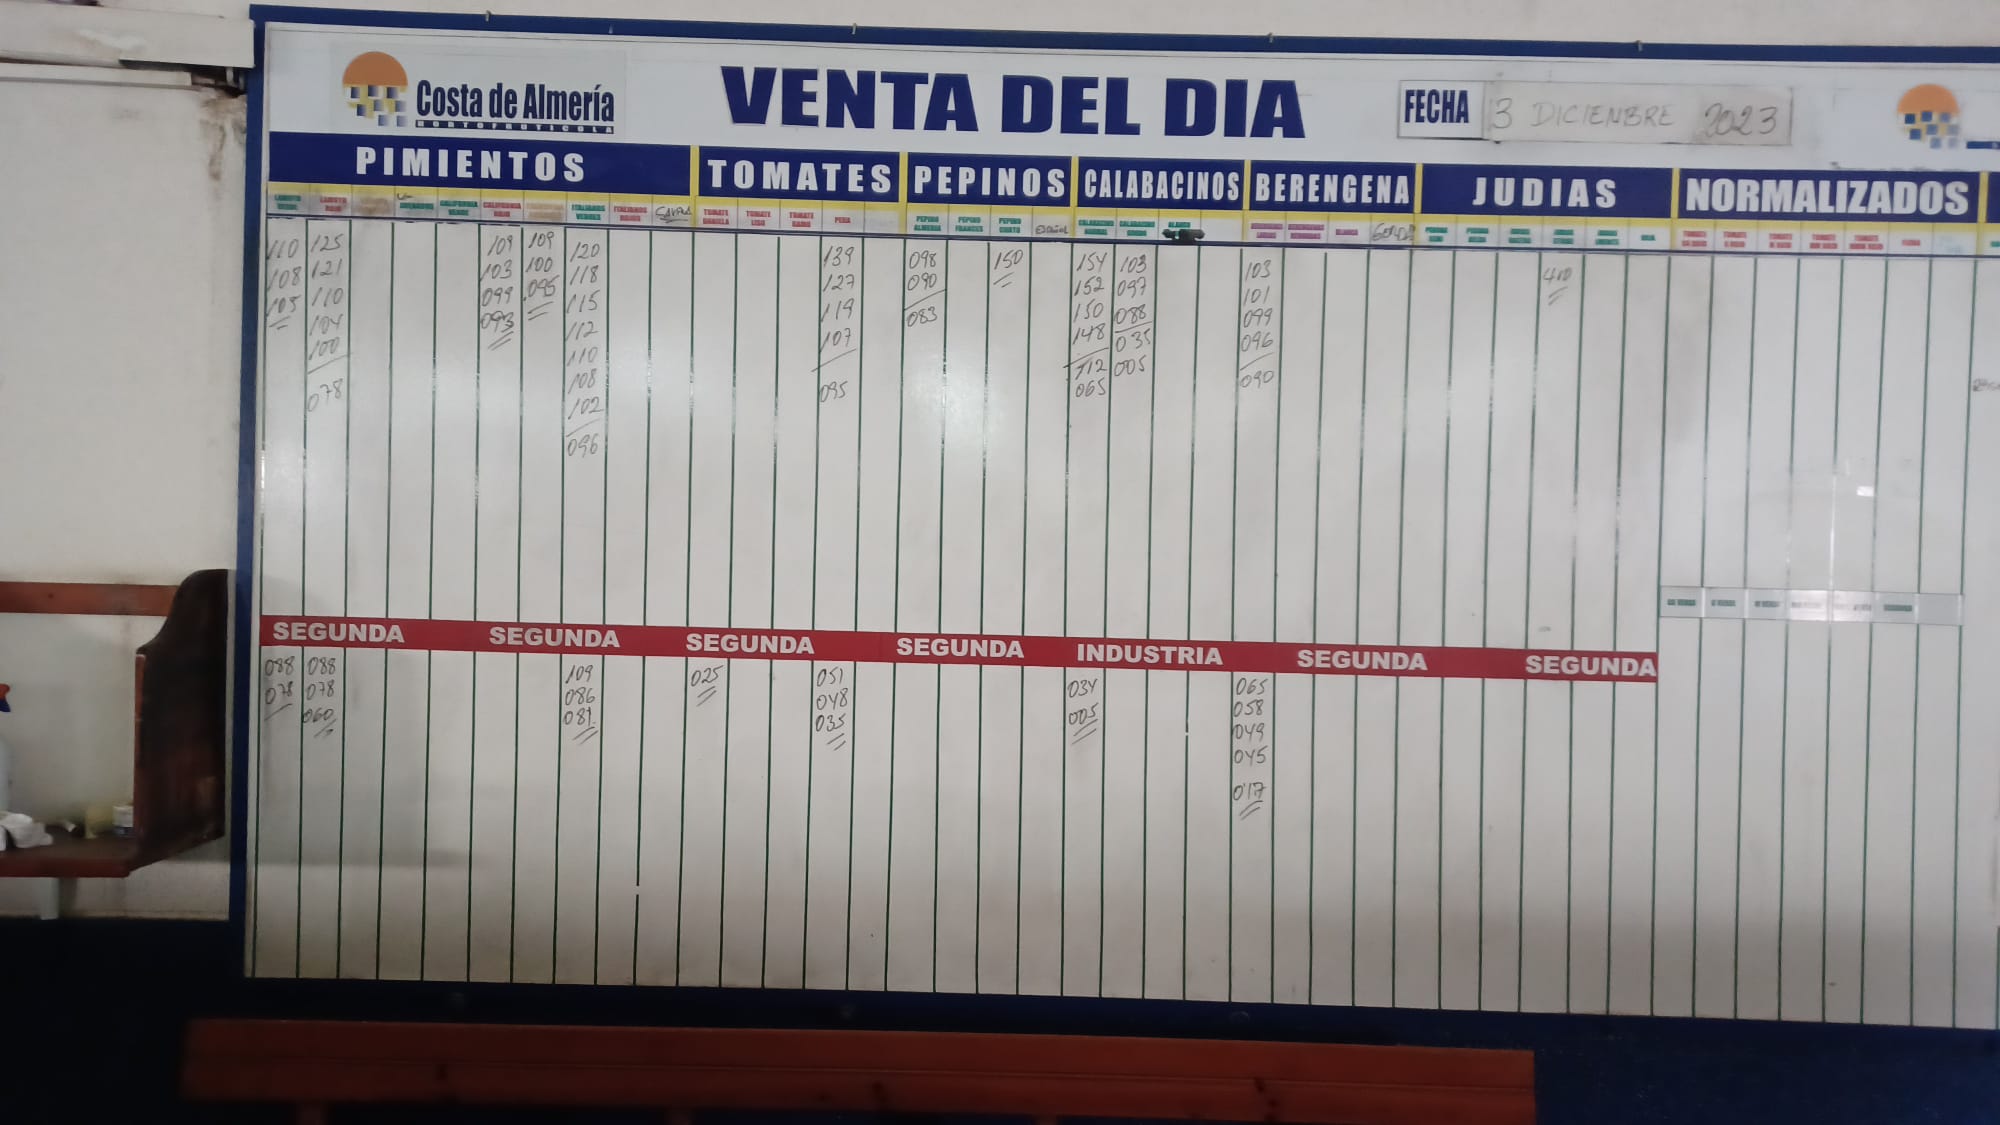 Costa de Almería
HORTOFRUTICOLA
VENTA DEL DIA
FECHA 3 DICIENBRE 2023
PIMIENTOS TOMATES PEPINOS CALABACINOS BERENGENA JUDIAS NORMALIZADOS
LAMUYO VERDE
LAMUYO ROJO
CALIFORNIA VERDE
CALIFORNIA ROJO
ITALIANOS VERDES
ITALIANOS ROJOS
TOMATE DANIELA
TOMATE LISO
TOMATE RAMO
PERA
PEPINO ALMERIA
PEPINO FRANCES
PEPINO CORTO
ESPAÑOL
CALABACINO NORMAL
CALABACINO GORDO
BLANCO
BLANCA
GORDA
110
108
105
125
121
110
104
100
078
109
103
099
093
109
100
095
120
118
115
112
110
108
102
096
139
127
119
107
095
098
090
083
150
154
152
150
148
112
065
103
097
088
035
005
103
101
099
096
090
410
SEGUNDA SEGUNDA SEGUNDA SEGUNDA INDUSTRIA SEGUNDA SEGUNDA
088
078
088
078
060
109
086
081
025
051
048
035
034
005
065
058
049
045
0'17